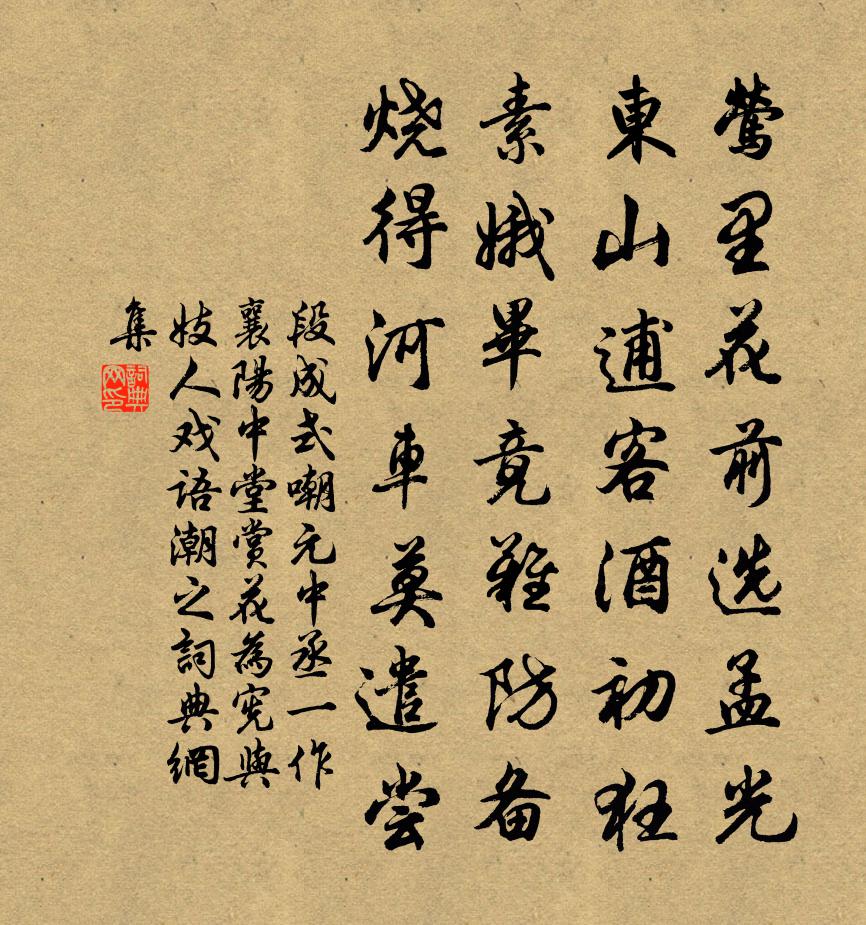 莺里花前选孟光
東山逋客酒初狂
素娥畢竟難防备
烧得河车莫遣尝
段成式嘲元中丞一作
襄陽中堂赏花為宪與
妓人戏语潮之詞典網
集
詞典网印